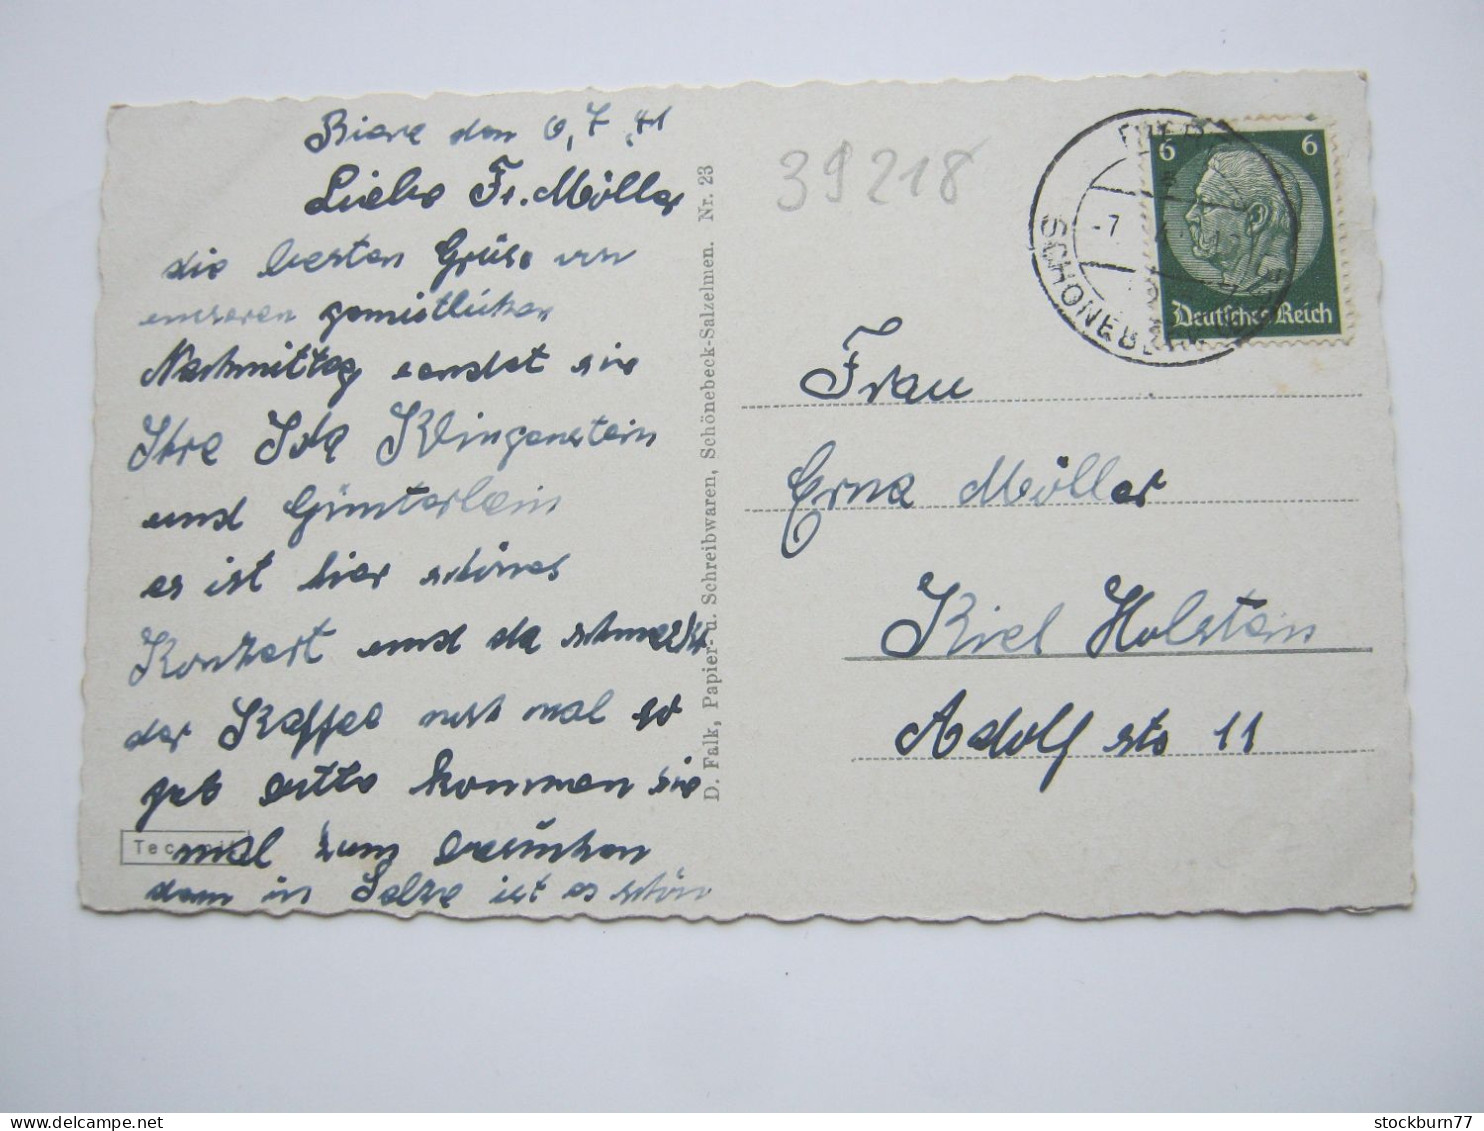 Biere den 6,7.41
Liebe Fr. Möller
die besten Grüse von
unseren gemütlichen
Nachmittag sendet sie
Ihre Ida Klingenstein
und Günterlein
es ist hier schönes
Konzert und da schmeckt
der Kaffee noch mal so
gut bitte kommen sie
mal zum besuchen
dann in Salze ist es schön
D. Falk, Papier- u. Schreibwaren, Schönebeck-Salzelmen. Nr. 23
39218
SCHÖNEBECK
-7
6 6
Deutsches Reich
Frau
Erna Möller
Kiel Holstein
Adolf str 11
stockburn77